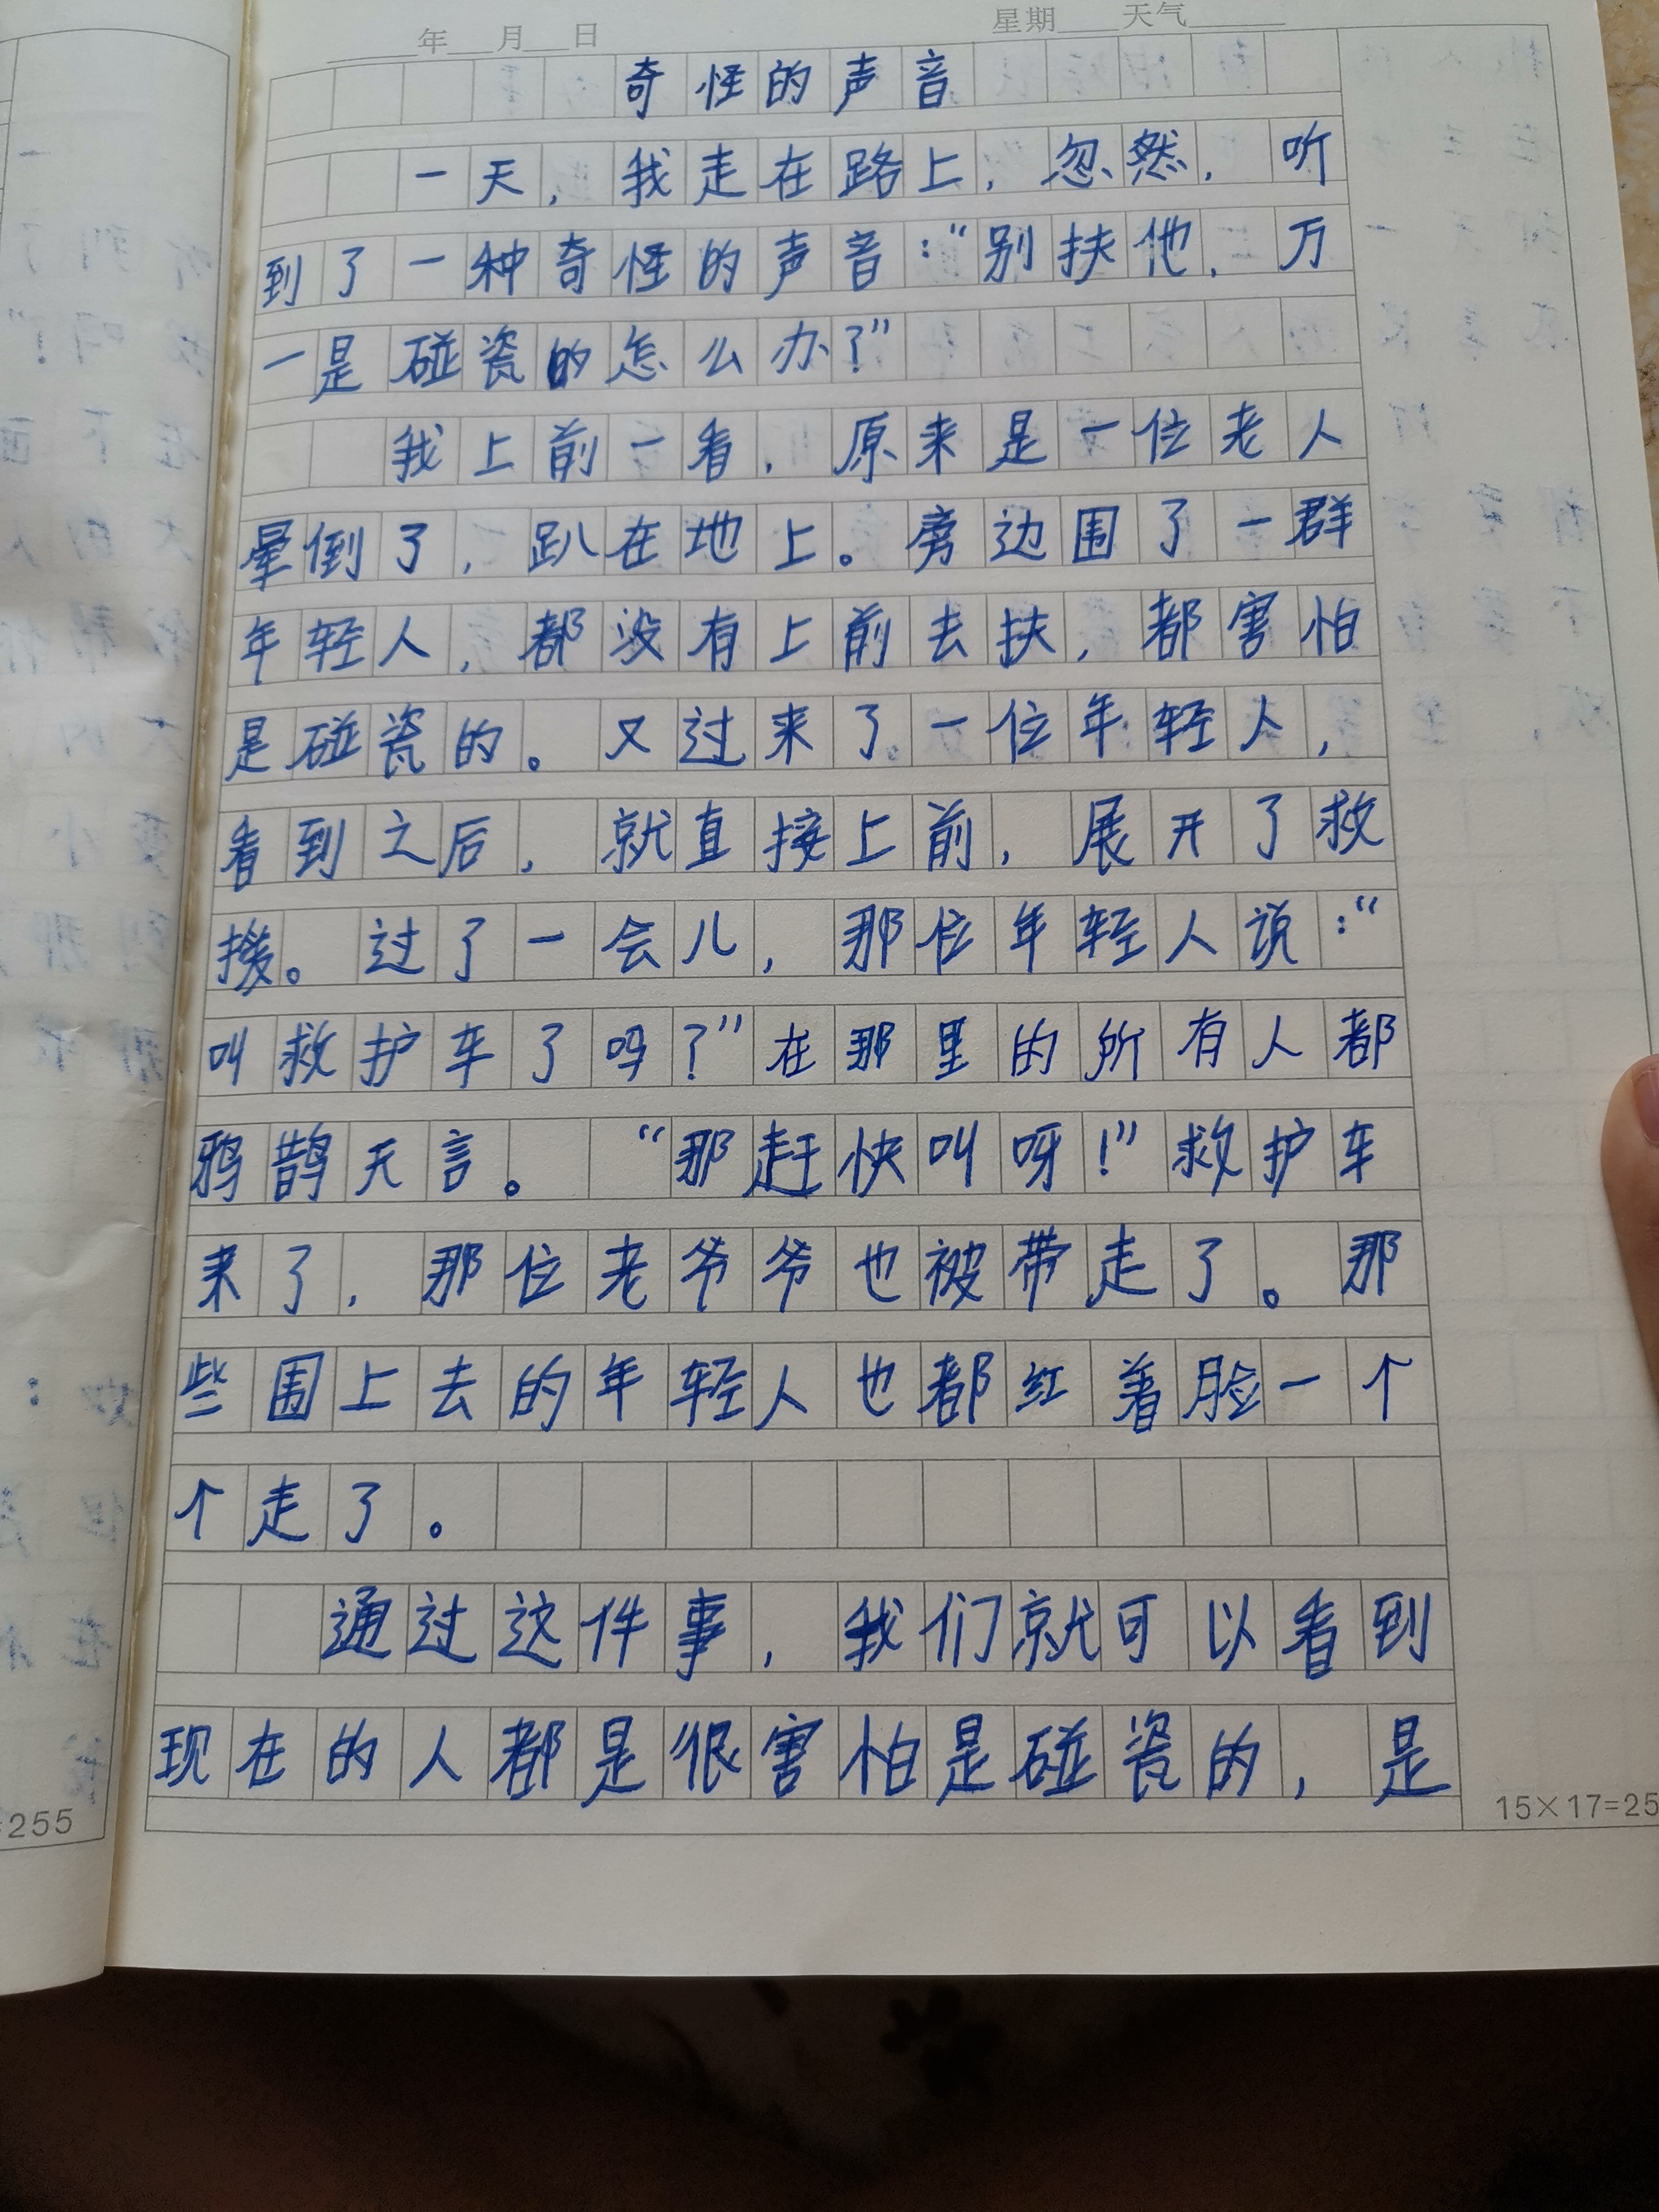 年 月 日 星期 天气
奇怪的声音
一天，我走在路上，忽然，听
到了一种奇怪的声音：“别扶他，万
一是碰瓷的怎么办？”
我上前一看，原来是一位老人
晕倒了，趴在地上。旁边围了一群
年轻人，都没有上前去扶，都害怕
是碰瓷的。又过来了一位年轻人，
看到之后，就直接上前，展开了救
援。过了一会儿，那位年轻人说：“
叫救护车了吗？”在那里的所有人都
鸦鹊无言。“那赶快叫呀！”救护车
来了，那位老爷爷也被带走了。那
些围上去的年轻人也都红着脸一个
个走了。
通过这件事，我们就可以看到
现在的人都是很害怕是碰瓷的，是
=255
15×17=25